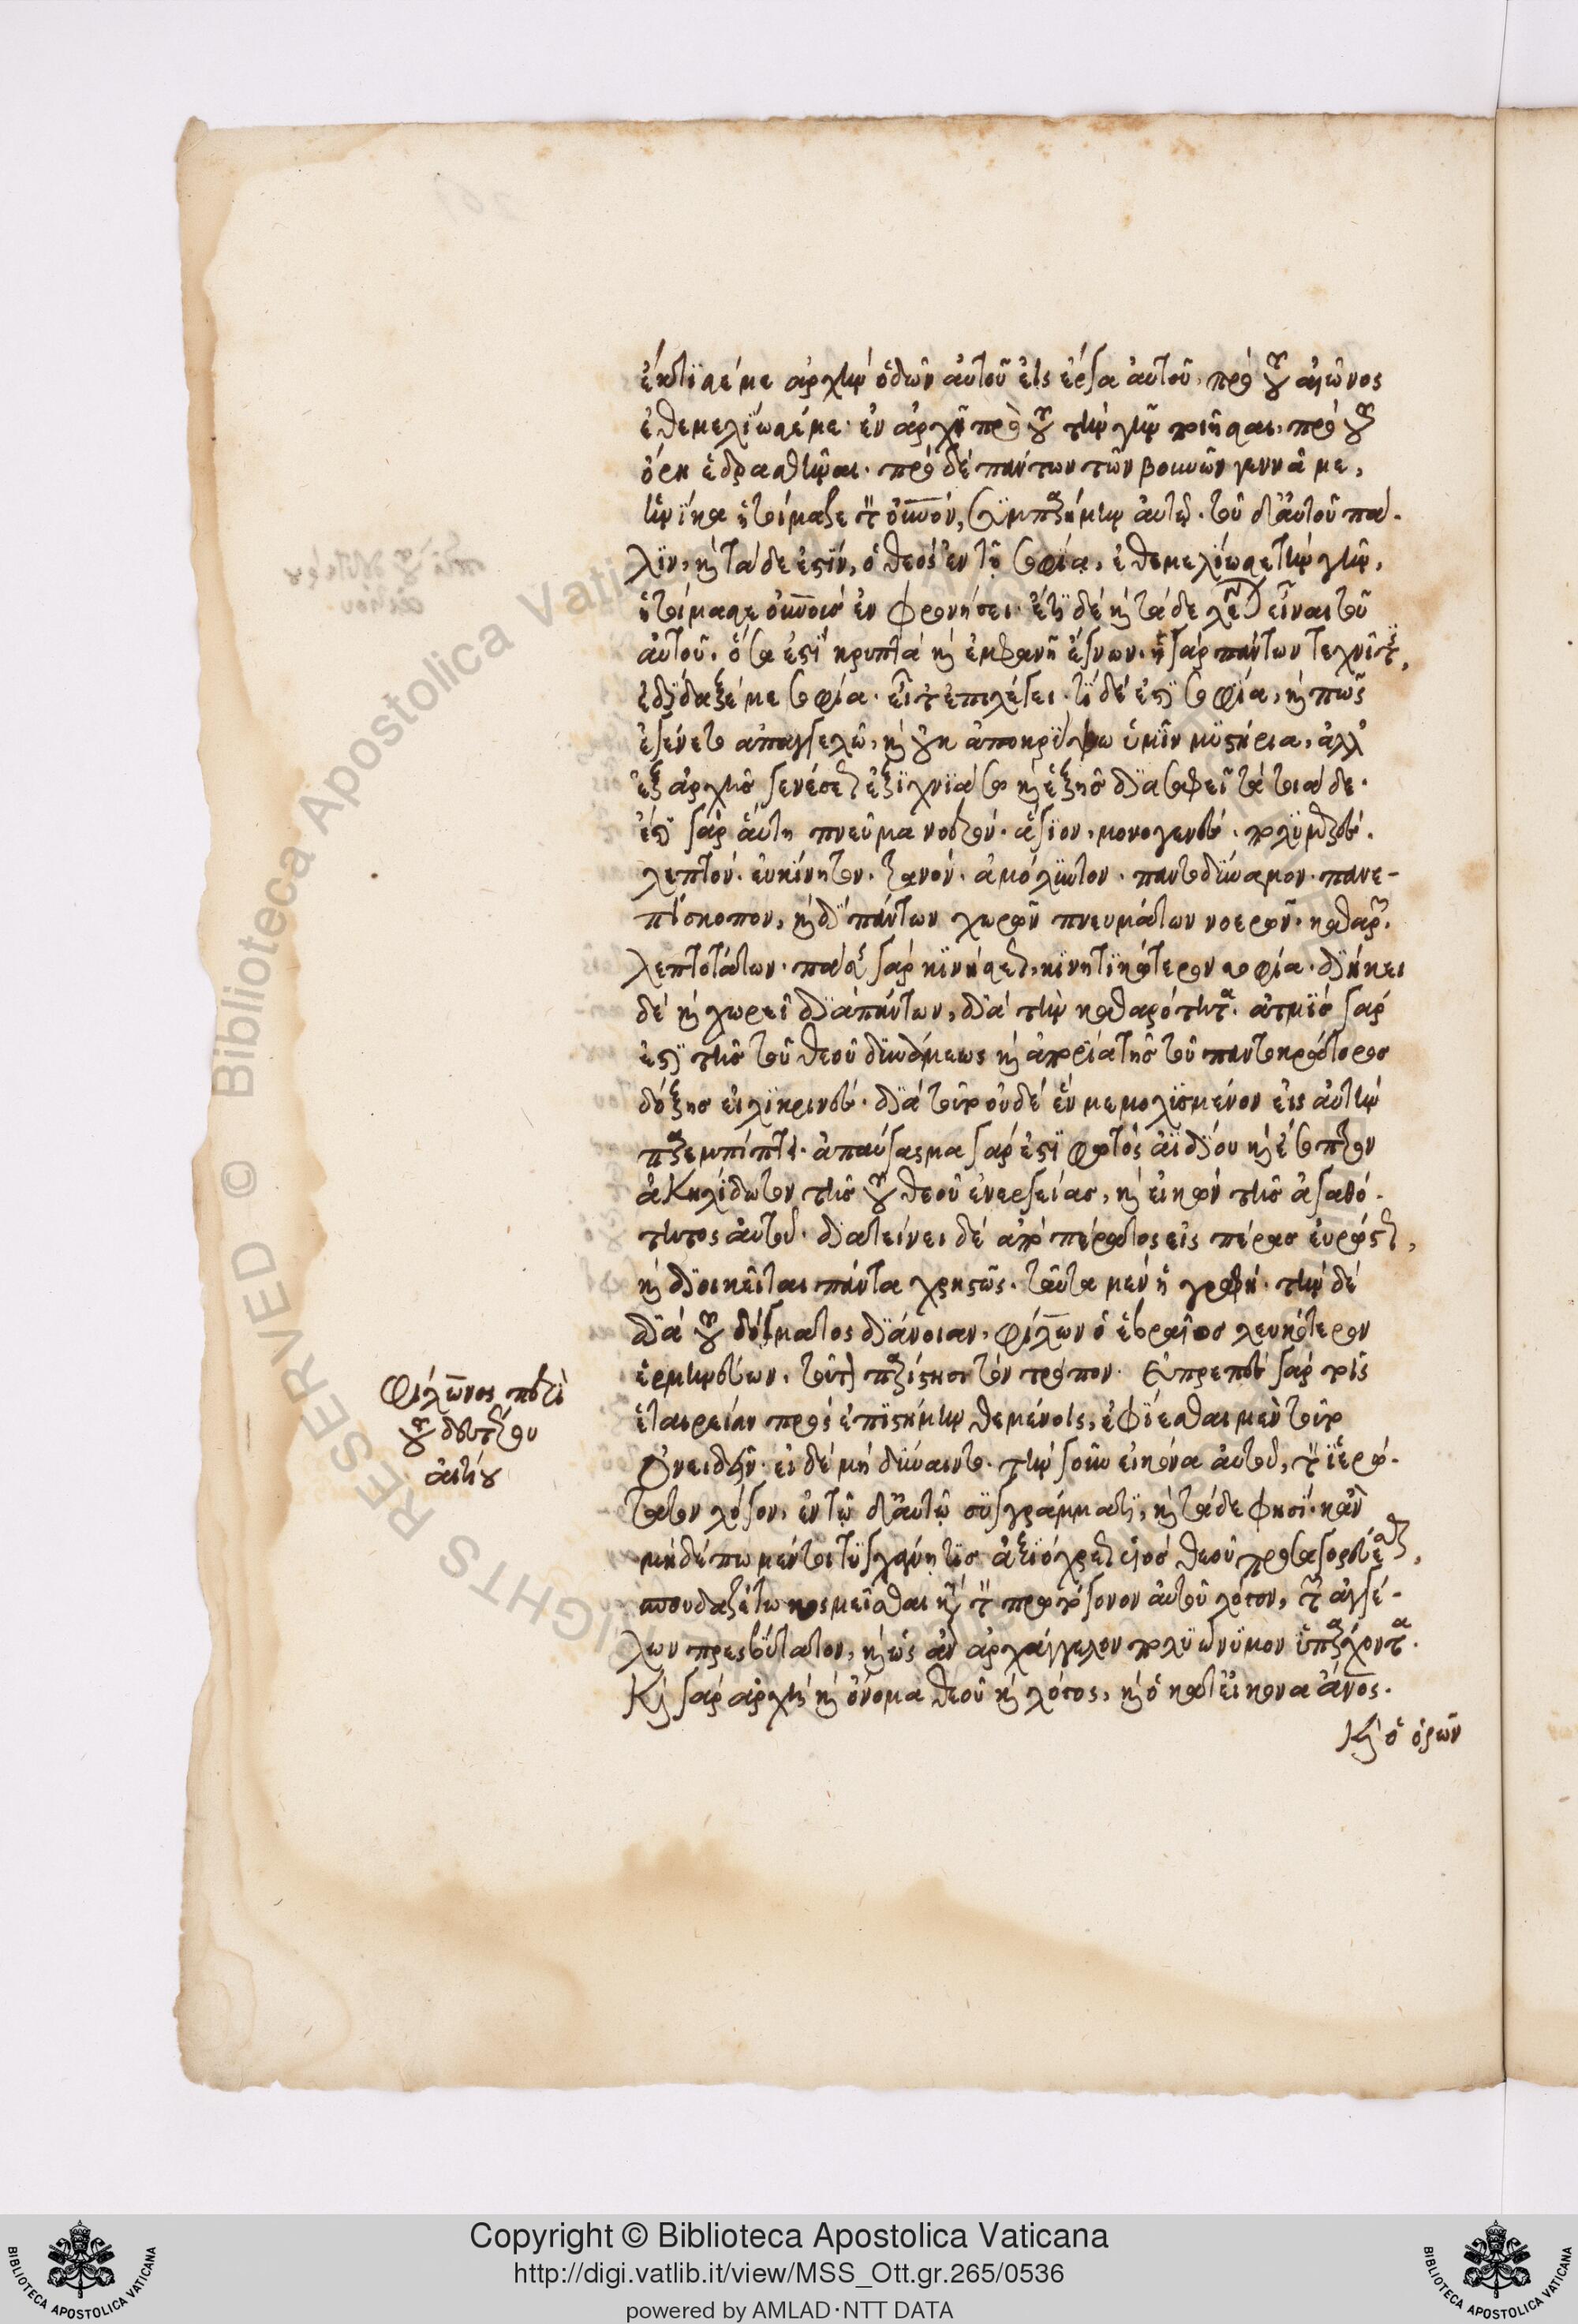 ἔκτισέ με ἀρχὴν ὁδῶν αὐτοῦ εἰς ἔργα αὐτοῦ, πρὸ τοῦ αἰῶνος
ἐθεμελίωσέ με· ἐν ἀρχῇ πρὸ τοῦ τὴν γῆν ποιῆσαι. πρὸ τοῦ
ὄρη ἑδρασθῆναι. πρὸ δὲ πάντων τῶν βουνῶν γεννᾷ με,
ἡνίκα ἡτοίμαζε τὸν οὐνόν, συμπαρήμην αὐτῷ. τοῦ δ' αὐτοῦ πά-
λιν, καὶ τάδε ἐστίν, ὁ θεὸς ἐν τῇ σοφίᾳ, ἐθεμελίωσε τὴν γῆν,
ἡτοίμασε οὐνοὺς ἐν φρονήσει. ἔτι δὲ καὶ τάδε λέγεται εἶναι τοῦ
αὐτοῦ. ὅσα ἐστὶ κρυπτὰ καὶ ἐμφανῆ ἔγνων. ἡ γὰρ πάντων τεχνῖτις,
ἐδίδαξέ με σοφία. εἶτ' ἐπιλέγει. τί δέ ἐστι σοφία, καὶ πῶς
ἐγένετο ἀπαγγελῶ, καὶ οὐκ ἀποκρύψω ὑμῖν μυστήρια, ἀλλ'
ἐξ ἀρχῆς γενέσεως ἐξιχνιάσω καὶ ἑξῆς διασαφεῖ τὰ τοιάδε.
ἔστι γὰρ αὕτη πνεῦμα νοερόν. ἅγιον. μονογενές. πολυμερές.
λεπτόν. εὐκίνητον. τρανόν. ἀμόλυντον. παντοδύναμον. πανε-
πίσκοπον, καὶ διὰ πάντων χωροῦν πνευμάτων νοερῶν. καθαρῶν.
λεπτοτάτων. πάσης γὰρ κινήσεως, κινητικώτερον σοφία. διήκει
δὲ καὶ χωρεῖ διὰ πάντων, διὰ τὴν καθαρότητα. ἀτμὶς γάρ
ἐστι τῆς τοῦ θεοῦ δυνάμεως καὶ ἀπόρροια τῆς τοῦ παντοκράτορος
δόξης εἰλικρινές. διὰ τοῦτο οὐδὲ ἓν μεμολισμένον εἰς αὐτὴν
παρεμπίπτει. ἀπαύγασμα γάρ ἐστι φωτὸς ἀϊδίου καὶ ἔσοπτρον
ἀκηλίδωτον τῆς τοῦ θεοῦ ἐνεργείας, καὶ εἰκὼν τῆς ἀγαθό-
τητος αὐτοῦ. διατείνει δὲ ἀπὸ πέρατος εἰς πέρας εὐρώστως,
καὶ διοικεῖται πάντα χρηστῶς. ταῦτα μὲν ἡ γραφή. τὴν δὲ
διὰ τοῦ δόγματος διάνοιαν, φίλων ὁ ἑβραῖος λευκότερον
ἑρμηνεύων, τοῦτον παρίστησι τὸν τρόπον. Εὐπρεπὲς γὰρ τοῖς
ἑταιρείαν πρὸς ἐπιστήμην θεμένοις, ἐφίεσθαι μὲν τοῦ
ὂν εἰδεῖν. εἰ δὲ μὴ δύναιντο. τὴν γοῦν εἰκόνα αὐτοῦ, τὸν ἱερώ-
τατον λόγον, ἐν τῷ δ' αὐτῷ συγγράμματι, καὶ τάδε φησί. κἂν
μηδέπω μέντοι τυγχάνῃ τις ἀξιόχρεως υἱὸς θεοῦ προσαγορεύεσθαι,
σπουδαζέτω κοσμεῖσθαι κατὰ τὸν πρωτόγονον αὐτοῦ λόγον, τὸν ἀγγέ-
λων πρεσβύτατον, καὶ ὡς ἂν ἀρχάγγελον πολυώνυμον ὑπάρχοντα.
Καὶ γὰρ ἀρχὴ καὶ ὄνομα θεοῦ καὶ λόγος, καὶ ὁ κατ' εἰκόνα ἄνος.
Καὶ ὁ ὁρῶν
Φίλωνος περὶ
τοῦ δευτέρου
αἰτίου
Copyright © Biblioteca Apostolica Vaticana
http://digi.vatlib.it/view/MSS_Ott.gr.265/0536
powered by AMLAD·NTT DATA
BIBLIOTECA APOSTOLICA VATICANA
BIBLIOTECA APOSTOLICA VATICANA